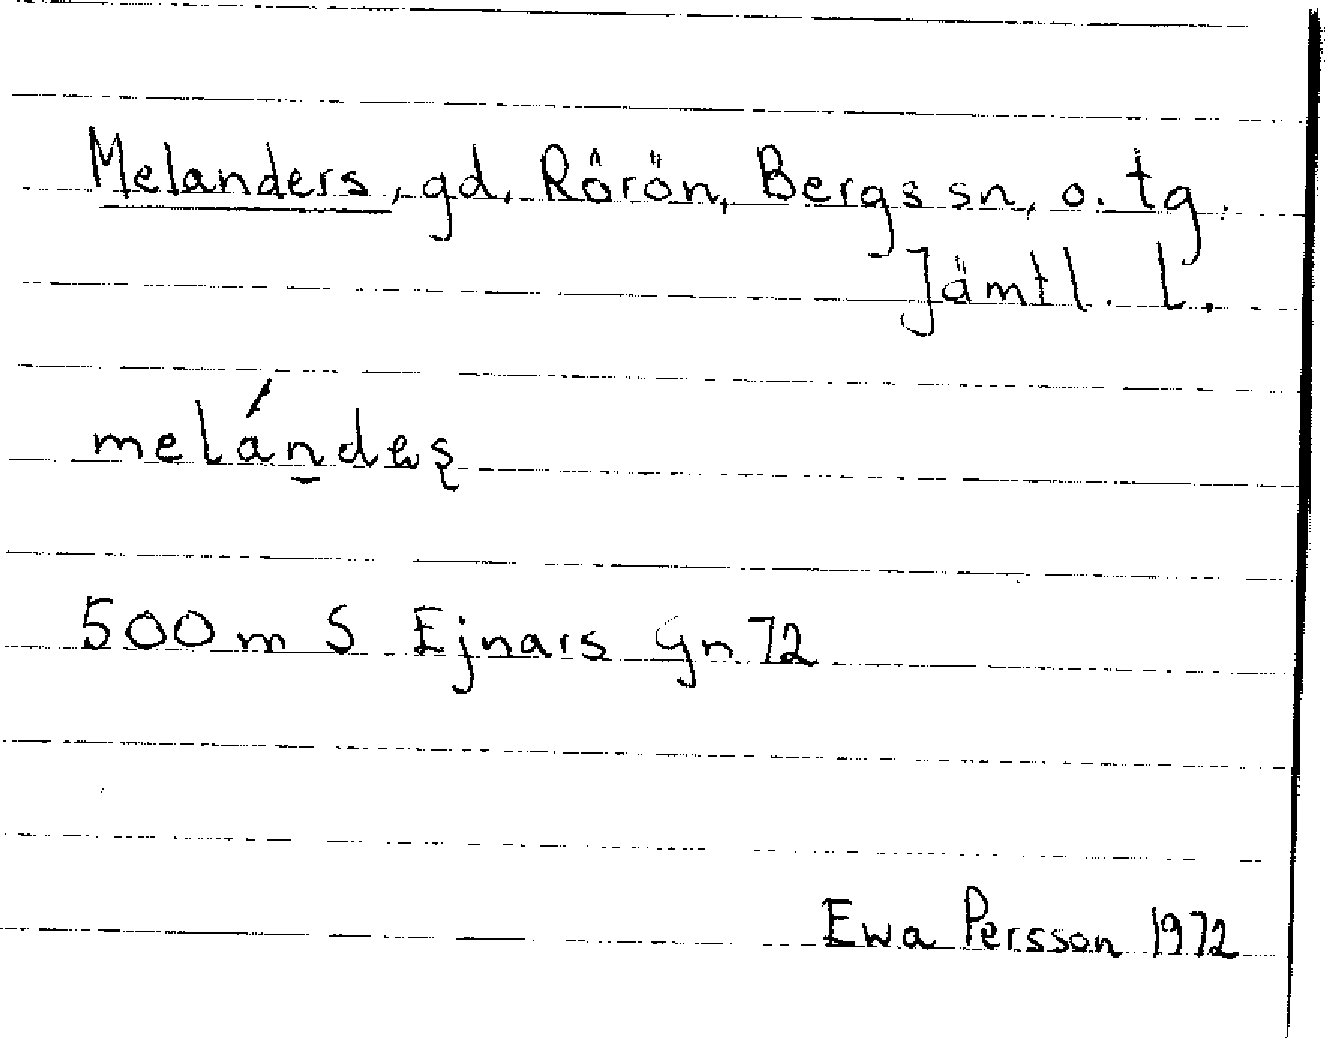 Melanders, gd, Rörön, Bergs sn, o. tg.
Jämtl. L.
500 m S Ejnars Gn 72
Ewa Persson 1972